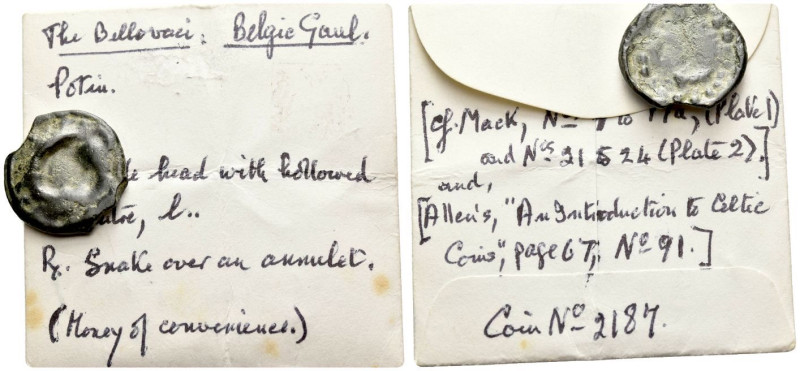 The Bellovaci: Belgic Gaul.
Potin.
head with hollowed
l..
R. Snake over an annulet.
(Money of convenience.)
[cf. Mack, Nos to (Plate 1)
and Nos 21 & 24 (Plate 2).]
and,
[Allen's, "An Introduction to Celtic
Coins", page 67, No 91.]
Coin No 2187.